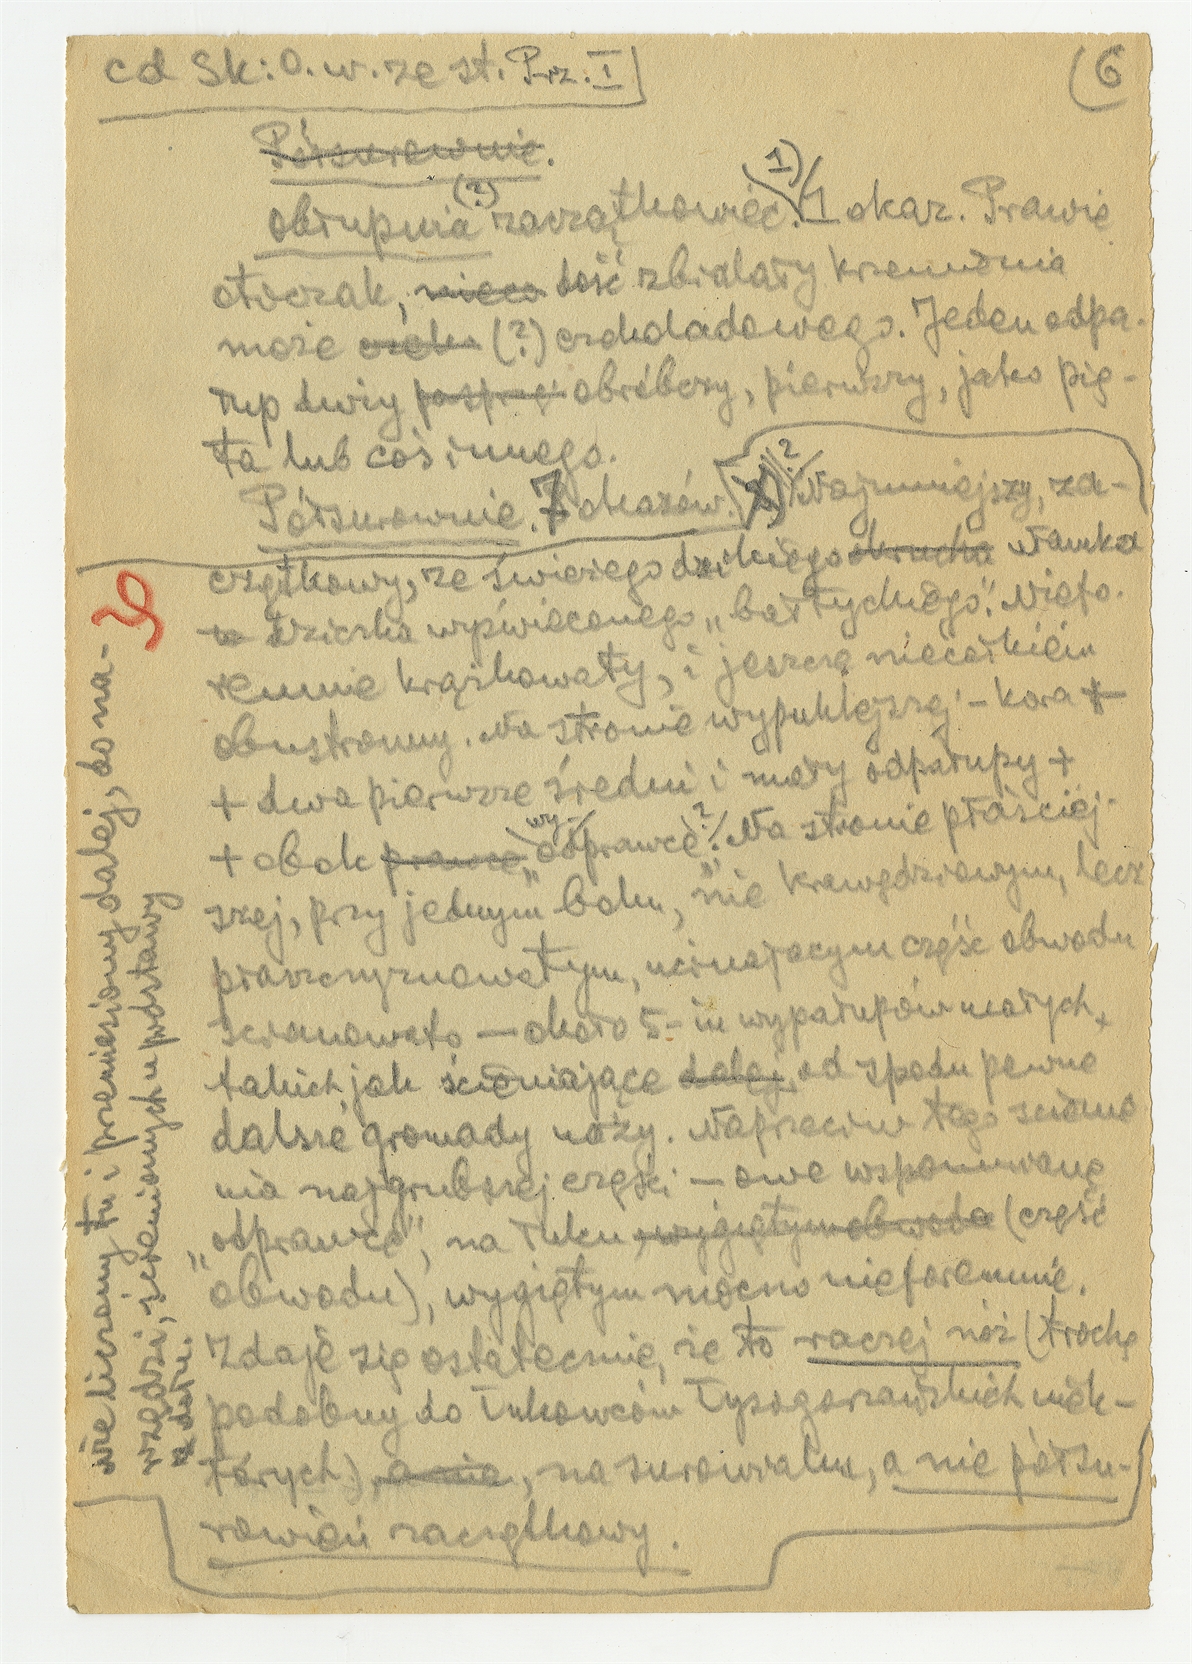 cd Sk: O. w. ze st. Prz. I
(6
Półsurownie.
obłupnia (?) zaczątkowiec. 1) 1 okaz. Prawie
otoczak, nieco dość zbielały krzemienia
może (?) czekoladowego. Jeden odpa-
łup duży obróbczy, pierwszy, jako pię-
ta lub coś innego.
Półsurownie. 7 okazów. ? Najmniejszy, za-
czątkowy, ze świeżego dzikiego okrucha
wypświeconego „bałtyckiego”. Niefo-
remnie krążkowaty, i jeszcze niecałkiem
obustronny. Na stronie wypuklejszej – kora +
+ dwa pierwsze średni i mały odpałupy +
+ obok prawce „odprawce”? wy- Na stronie płaściej-
szej, przy jednym boku, nie krawędziowym, lecz
płaszczyznowatym, ucinającym część obwodu
ścianowato — około 5-iu wypałupów małych,
takich jak ścieniające dalej od spodu pewne
dalsze gromady noży. Naprzeciw tego
najgrubszej części — owe wspomniane
„odprawce”, na łuku wygiętym obwodu (część
obwodu), wygiętym mocno nieforemnie.
Zdaje się ostatecznie, że to raczej nóż (trochę
podobny do łukowców łysogorzańskich niek-
tórych), a nie, na surowiaku, a nie półsu-
rowiec zaczątkowy.
nie liczony tu i przeniesiony dalej, do na-
rzędzi, ścienionych u podstawy
z dołu.